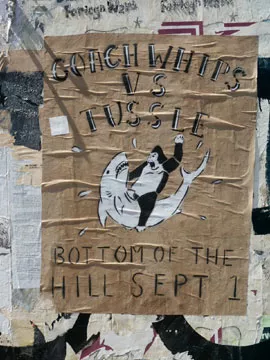 COACHWHIPS
VS
TUSSLE
BOTTOM OF THE
HILL SEPT 1